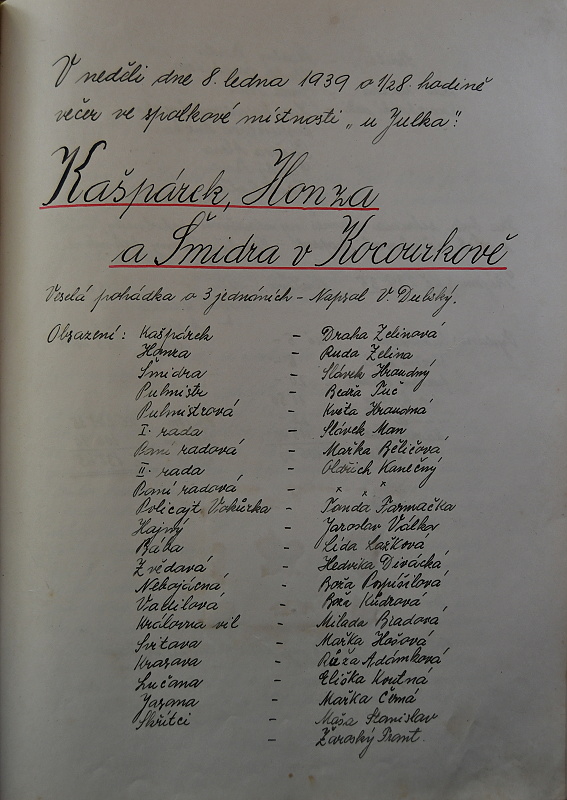 V neděli dne 8. ledna 1939 o 1/28. hodině
večer ve spolkové místnosti „u Julka":
Kašpárek, Honza
a Šmidra v Kocourkově
Veselá pohádka o 3 jednáních - Napsal V. Dubský.
Obsazení: Kašpárek - Draha Zelinová
Honza - Ruda Zelina
Šmidra - Slávek Hrandný
Pulmistr - Bedřa Tuč
Pulmistrová - Květa
I. rada - Slávek Man
Paní radová - Mařka Běličová
II. rada - Oldřich Kanečný
Paní radová - " " "
Policajt Vokurka - Tonda Farmačka
Hajný - Jaroslav Válka
Bába - Lída Lažková
Zvědavá - Hedvika Divácká
Nebojácná - Boža Pospíšilová
Vábilová - Boža Kudrová
Královna vil - Milada Bradová
Svitava - Mařka Hošová
Krasava - Růža Adámková
Lučana - Eliška Koutná
Jasana - Mařka Černá
Skřítci - Máša Stanislav
- Žároský Frant.